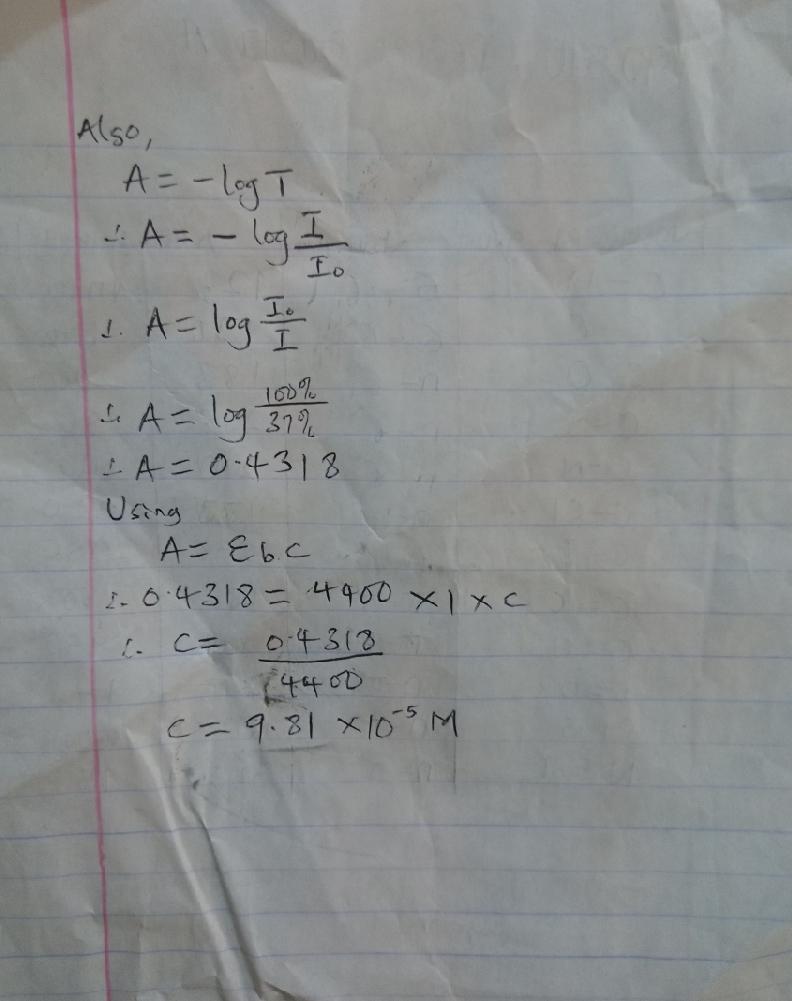 Also,
A = - log T
∴ A = - log I/I₀
∴ A = log I₀/I
∴ A = log 100%/37%
∴ A = 0.4318
Using
A = Ɛb.c
∴ 0.4318 = 4400 × 1 × c
∴ c = 0.4318/4400
c = 9.81 × 10⁻⁵ M